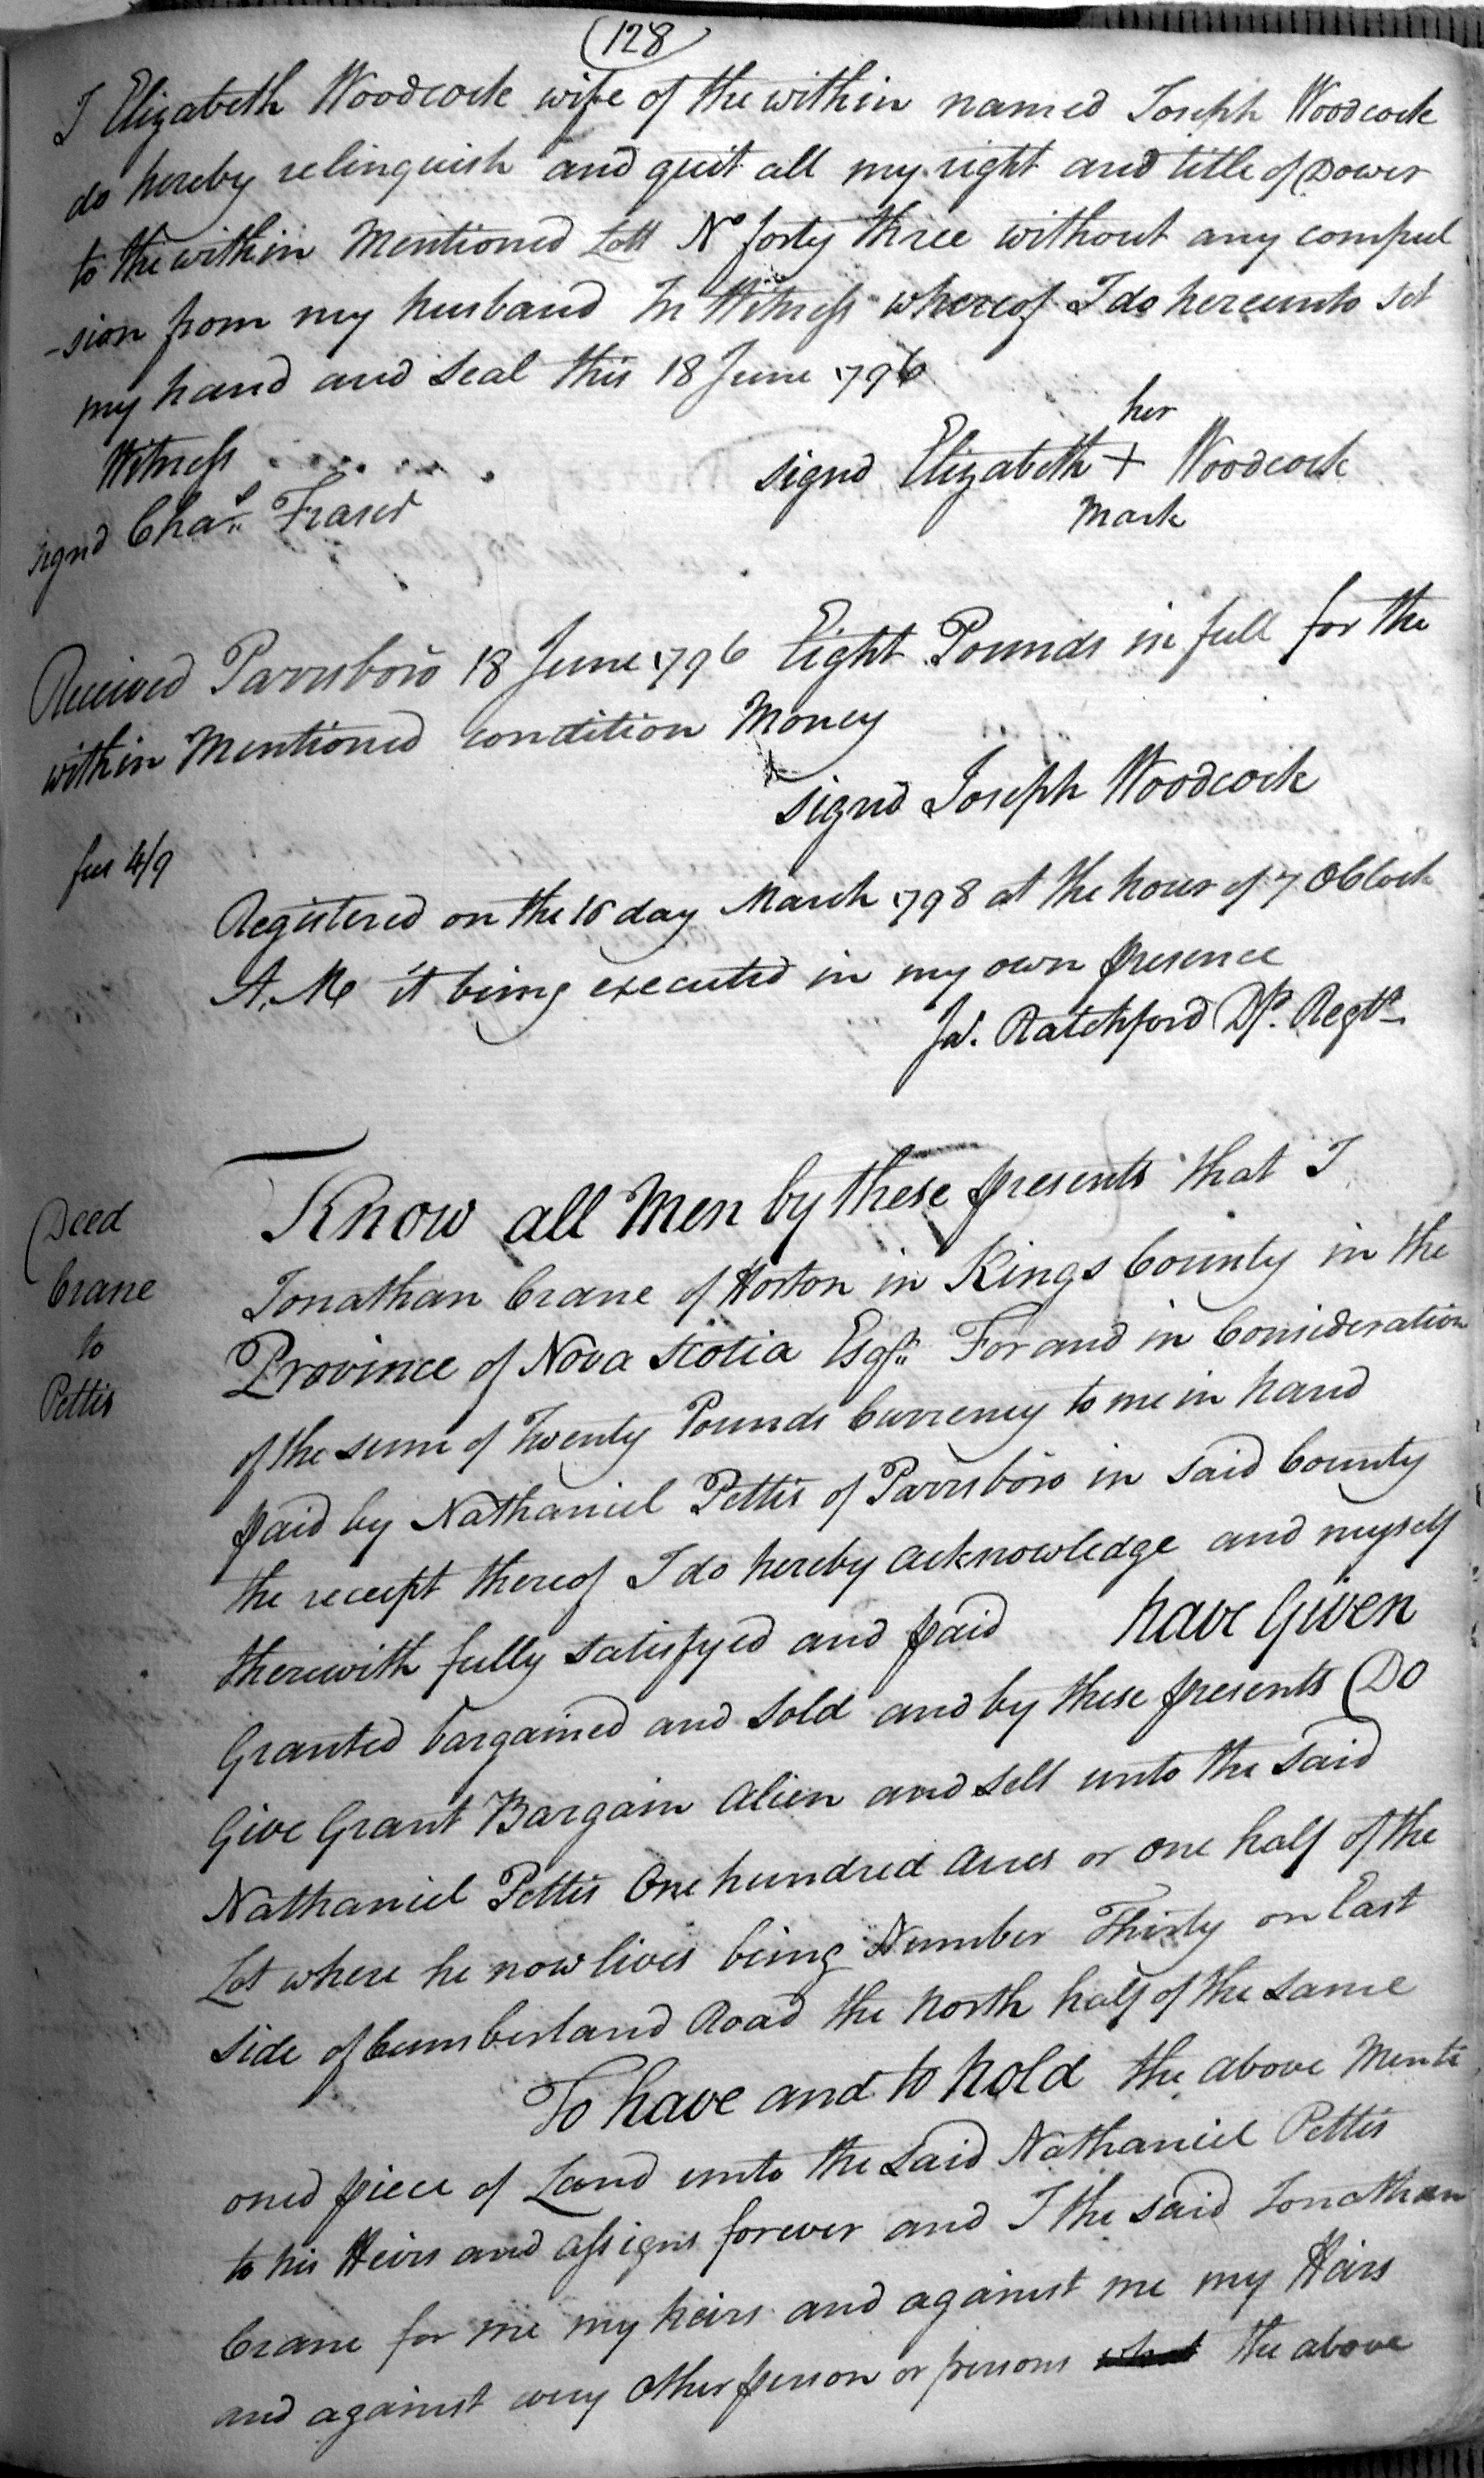 128
I Elizabeth Woodcock wife of the within named Joseph Woodcock
do hereby relinquish and quit all my right and title of Dower
to the within Mentioned Lott No forty three without any compul
-sion from my husband In Witness whereof I do hereunto set
my hand and seal this 18 June 1796
her
Witness
signd Elizabeth + Woodcock
signd Chas Fraser
mark
Received Parrsboro 18 June 1796 Eight Pounds in full for the
within Mentioned condition Money
signd Joseph Woodcock
fees 4/9
Registered on the 16 day March 1798 at the hour of 7 OClock
A.M. it being executed in my own presence
Jas. Ratchford Dp. Regtr
Deed
Crane
to
Pettis
Know all Men by these presents that I
Jonathan Crane of Horton in Kings County in the
Province of Nova Scotia Esqr. For and in Consideration
of the sum of Twenty Pounds Currency to me in hand
paid by Nathaniel Pettis of Parrsboro in said County
the receipt thereof I do hereby acknowledge and myself
therewith fully satisfyed and paid have Given
Granted bargained and sold and by these presents Do
Give Grant Bargain alien and sell unto the said
Nathaniel Pettis One hundred Acres or one half of the
Lot where he now lives being Number Thirty on East
side of Cumberland Road the North half of the same
To have and to hold the above Menti
oned piece of Land unto the said Nathaniel Pettis
to his Heirs and assigns forever and I the said Jonathan
Crane for me my heirs and against me my Heirs
and against every other person or persons the above